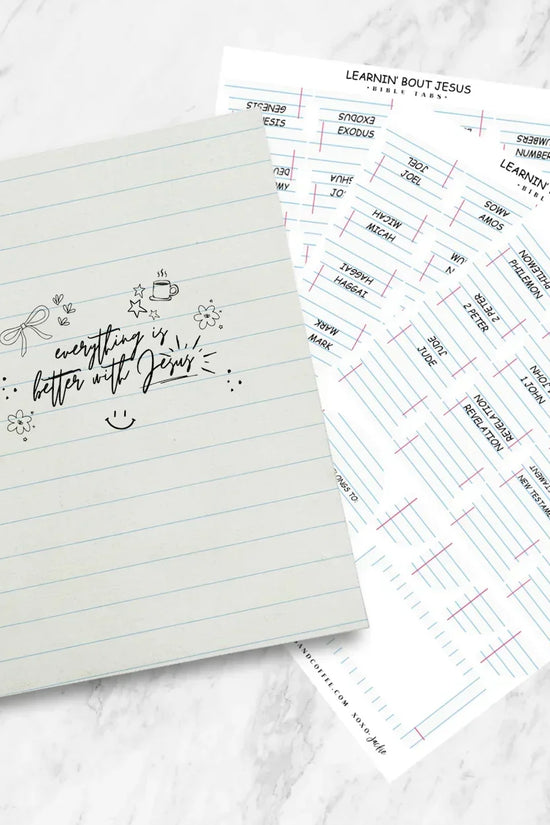 LEARNIN' BOUT JESUS
·BIBLE TABS·
GENESIS
EXODUS
EXODUS
NUMBERS
JOEL
JOEL
MICAH
MICAH
HAGGAI
HAGGAI
MARK
MARK
AMOS
AMOS
LEARNIN'
PHILEMON
PHILEMON
2 PETER
2 PETER
JUDE
JUDE
1 JOHN
1 JOHN
REVELATION
REVELATION
everything is
better with Jesus
ANDCOFFEE.COM XOXO-Jackie